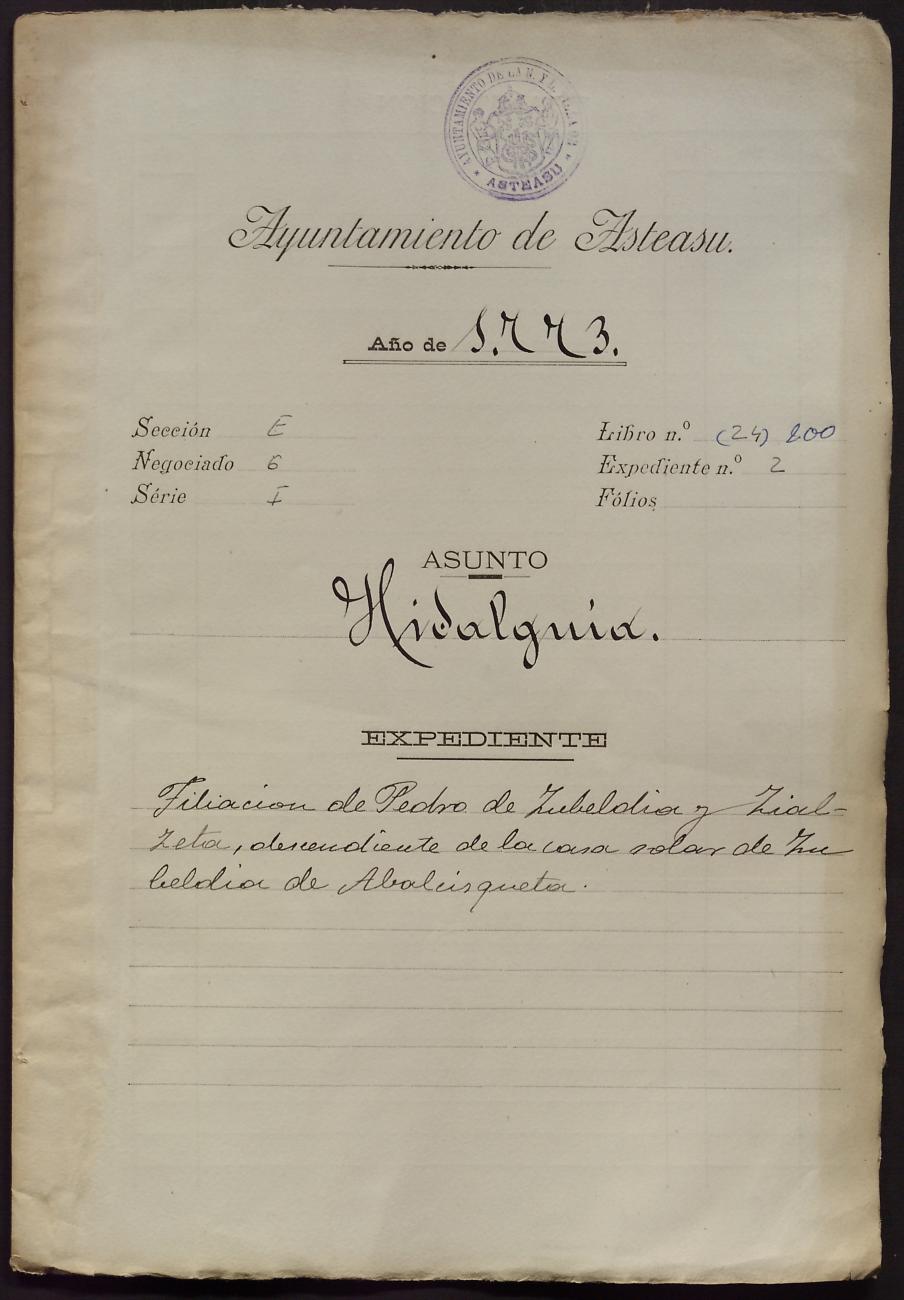 AYUNTAMIENTO DE LA N. Y L. VILLA DE
* ASTEASU *
Ayuntamiento de Asteasu.
Año de 1.773.
Sección E
Negociado 6
Série I
Libro n.º (24) 200
Expediente n.º 2
Fólios
ASUNTO
Hidalguia.
EXPEDIENTE
Filiacion de Pedro de Zubeldia y Zial-
zeta, descendiente de la casa solar de Zu
beldia de Abalcisqueta.